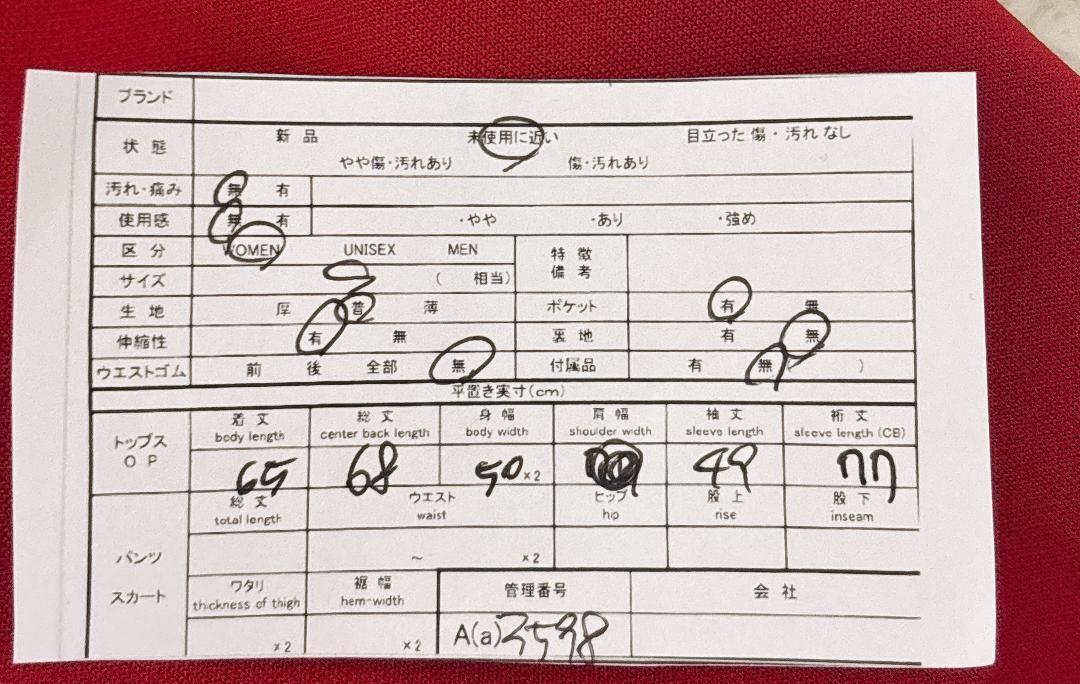 ブランド
状態 新品 未使用に近い 目立った傷・汚れなし
やや傷・汚れあり 傷・汚れあり
汚れ・痛み 無 有
使用感 無 有 ・やや ・あり ・強め
区分 WOMEN UNISEX MEN 特徴
備考
サイズ ( 相当)
生地 厚 普 薄 ポケット 有 無
伸縮性 有 無 裏地 有 無
ウエストゴム 前 後 全部 無 付属品 有 無( )
平置き実寸(cm)
トップス
OP
着丈 総丈 身幅 肩幅 袖丈 裄丈
body length center back length body width shoulder width sleeve length sleeve length (CB)
65 68 50 ×2 49 77
総丈 ウエスト ヒップ 股上 股下
total length waist hip rise inseam
パンツ ~ ×2
スカート
ワタリ 裾幅 管理番号 会社
thickness of thigh hem-width
×2 ×2 A(a)3598